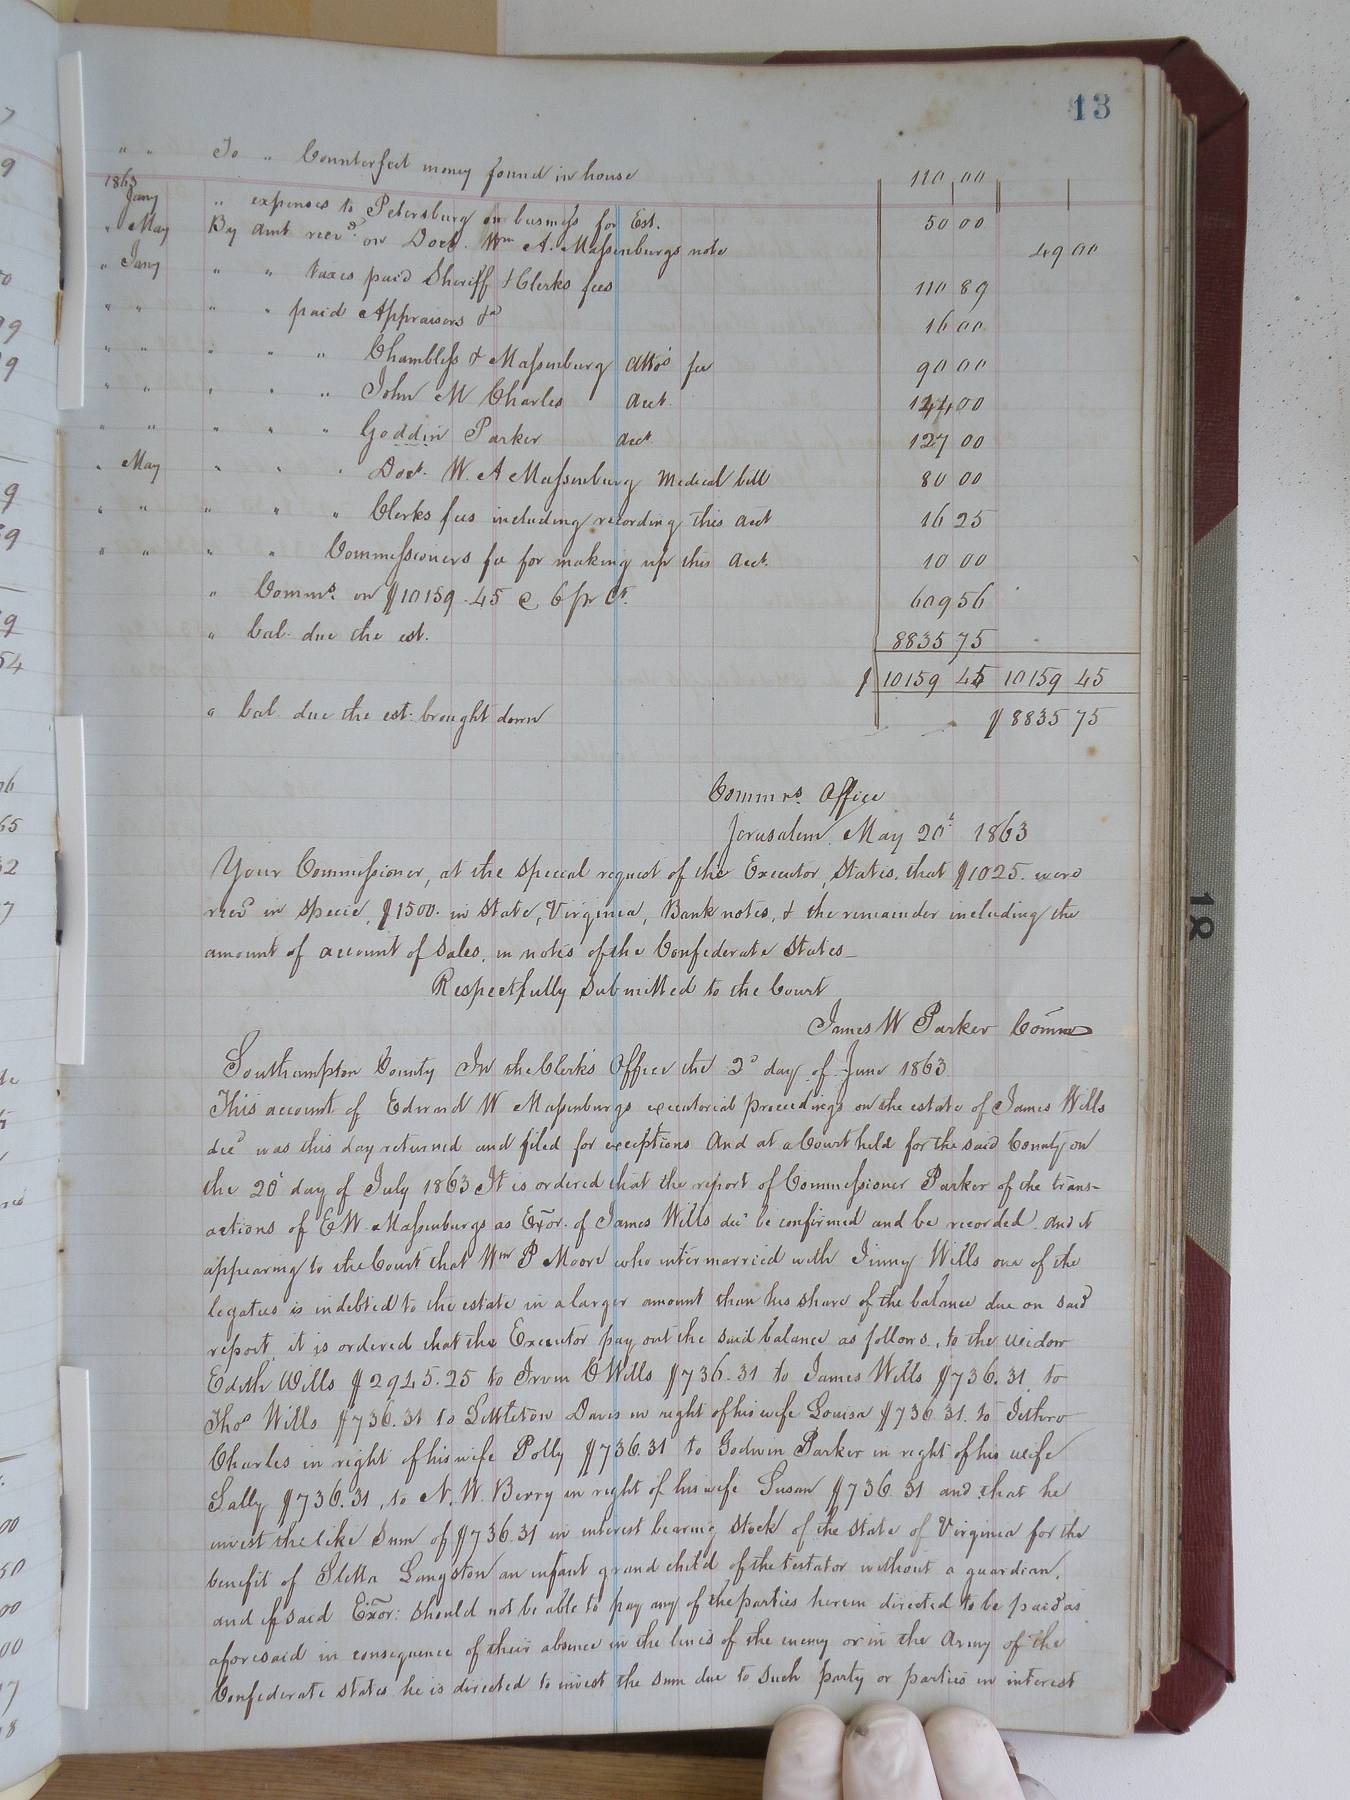 13
" " To " Counterfeit money found in house 110 00
1863
Jany " expenses to Petersburg on business for Est. 50 00
" May By amt recd. on Doct. Wm A. Massenburgs note 49 00
" Jany " " taxes paid Sheriff & Clerks fees 110 89
" " " " paid Appraisors &c 16 00
" " " " " Chambliss & Massenburg Attos fee 90 00
" " " " " John M Charles acct. 144 00
" " " " " Goddin Parker acct 127 00
" May " " " Doct. W. A Massenburg Medical bill 80 00
" " " " " Clerks fees including recording this acct 16 25
" " " " Commissioners fee for making up this acct. 10 00
" Comms. on $10159.45 @ 6 pr Ct. 609 56
" bal. due the est. 8835 75
$ 10159 45 10159 45
" bal. due the est. brought down $ 8835 75
Commrs. Office
Jerusalem, May 20t 1863
Your Commissioner, at the special request of the Executor, states, that $1025. were
recd in specie, $1500. in State, Virginia, Bank notes, & the remainder including the
amount of account of sales, in notes of the Confederate States_
Respectfully submitted to the Court
James W Parker Comm
Southampton County In the Clerks Office the 2d day of June 1863
This account of Edward W Massenburgs executorial proceedings on the estate of James Wills
decd was this day returned and filed for exceptions And at a Court held for the said County on
the 20t day of July 1863 It is ordered that the report of Commissioner Parker of the trans-
actions of E W Massenburgs as Exor. of James Wills decd be confirmed and be recorded. And it
appearing to the Court that Wm P Moore who intermarried with Jinny Wills one of the
legatees is indebted to the estate in a larger amount than his share of the balance due on said
report, it is ordered that the Executor pay out the said balance as follows, to the widow
Edith Wills $2945.25 to Irvin C Wills $736.31 to James Wills $736.31 to
Thos Wills $736.31 to Littleton Davis in right of his wife Louisa $736.31. to Jethro
Charles in right of his wife Polly $736.31 to Godwin Parker in right of his wife
Sally $736.31, to N. W. Berry in right of his wife Susan $736.31 and that he
invest the like sum of $736.31 in interest bearing stock of the State of Virginia for the
benefit of Langston an infant grand child of the testator without a guardian,
and if said Exor: should not be able to pay any of the parties herein directed to be paid as
aforesaid in consequence of their absence in the lines of the enemy or in the Army of the
Confederate States he is directed to invest the sum due to such party or parties in interest
18